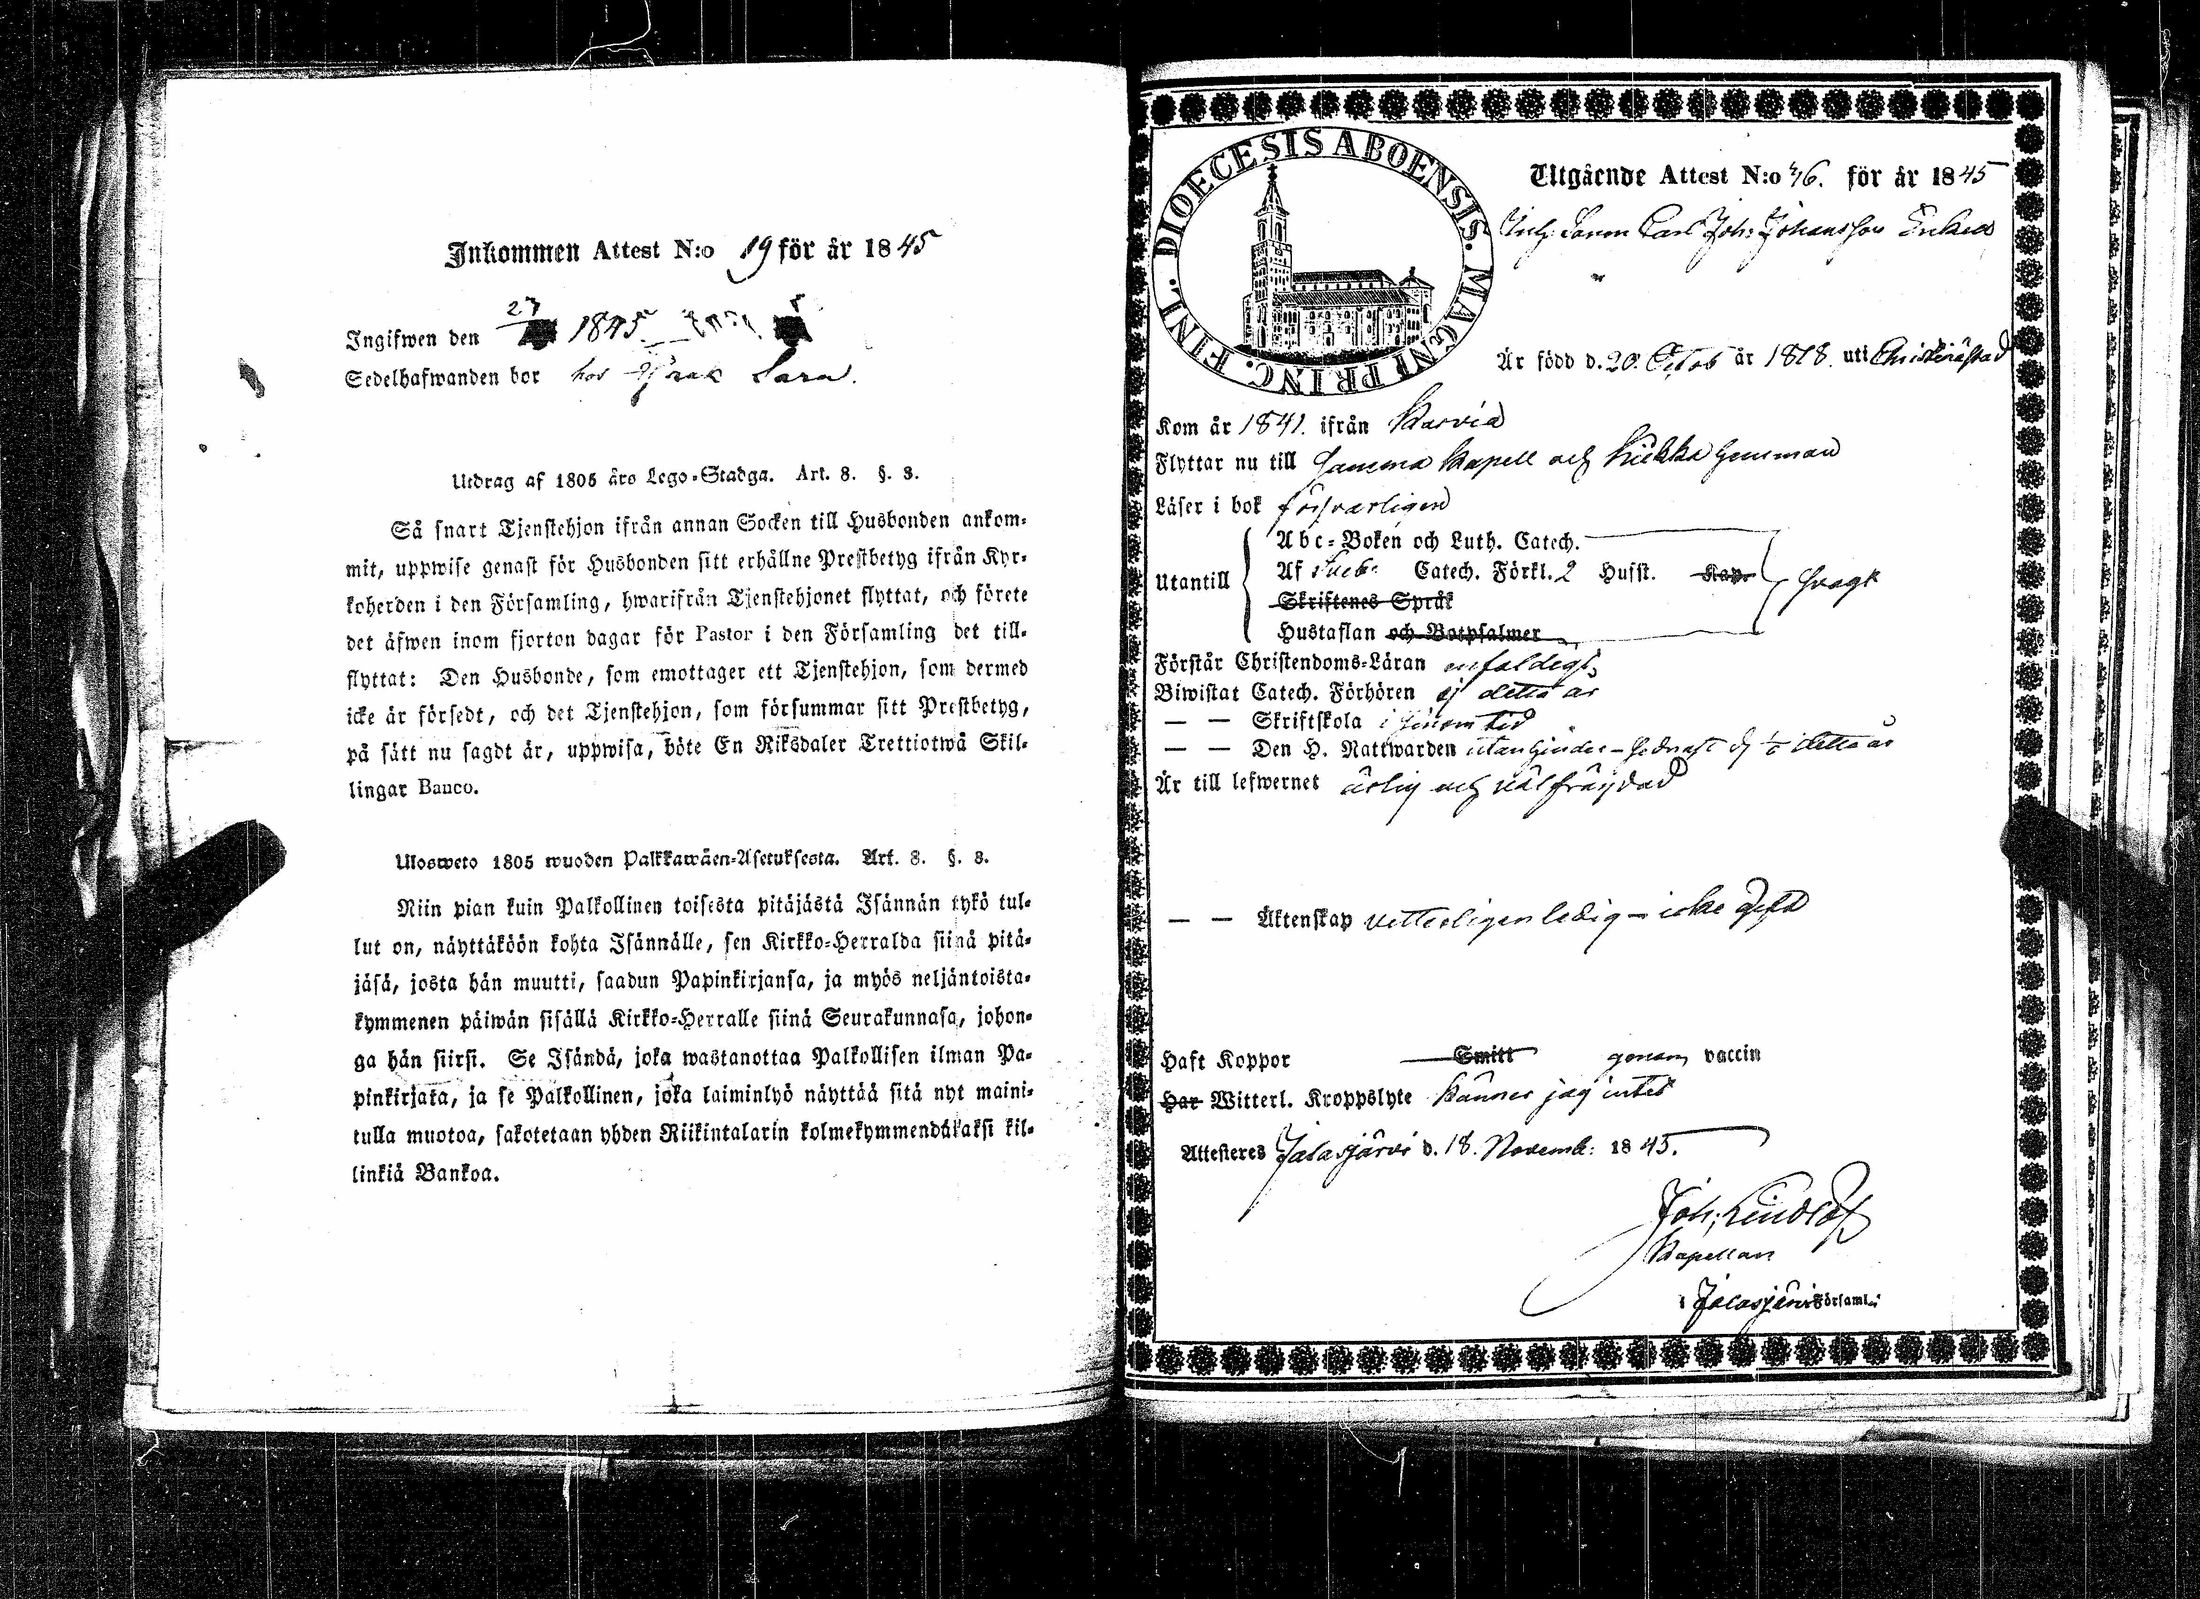 Inkommen Attest N:o 19 för år 1845
Ingifwen den 27 1845.
Sedelhafwanden bor hos Sara.
Utdrag af 1805 års Lego-Stadga. Art. 8. §. 3.
Så snart Tjenstehjon ifrån annan Socken till Husbonden ankom-
mit, uppwise genast för Husbonden sitt erhållne Prestbetyg ifrån Kyr-
koherden i den Församling, hwarifrån Tjenstehjonet flyttat, och förete
det äfwen inom fjorton dagar för Pastor i den Församling det till-
flyttat: Den Husbonde, som emottager ett Tjenstehjon, som dermed
icke är försedt, och det Tjenstehjon, som försummar sitt Prestbetyg,
på sätt nu sagdt är, uppwisa, böte En Riksdaler Trettiotwå Skil-
lingar Banco.
Ulosweto 1805 wuoden Palkkawäen-Asetuksesta. Art. 8. §. 3.
Niin pian kuin Palkollinen toisesta pitäjästä Isännän tykö tul-
lut on, näyttäköön kohta Isännälle, sen Kirkko-Herralda siinä pitä-
jäsä, josta hän muutti, saadun Papinkirjansa, ja myös neljäntoista-
kymmenen päiwän sisällä Kirkko-Herralle siinä Seurakunnasa, johon-
ga hän siirsi. Se Isändä, joka wastanottaa Palkollisen ilman Pa-
pinkirjata, ja se Palkollinen, joka laiminlyö näyttää sitä nyt maini-
tulla muotoa, sakotetaan yhden Riikintalarin kolmekymmendäkaksi kil-
linkiä Bankoa.
DIOECESIS ABOENSIS. MAGNI PRINC. FINL.
Utgående Attest N:o 46. för år 1845
Carl Joh: Johansson
Är född d. 20. Octob år 1818. uti Christinästad
Kom år 1841. ifrån Karvia
Flyttar nu till samma Kapell och hemman
Läser i bok försvarligen
Abc-Boken och Luth. Catech.
Utantill Af Sveb. Catech. Förkl. 2 Husst. Kap. svagt
Skriftenes Språk
Hustaflan och Botpsalmer
Förstår Christendoms-Läran enfaldigt
Biwistat Catech. Förhören ej detta år
— — Skriftskola i sinom tid
— — Den H. Nattwarden utan hinder - sednast d detta år
Är till lefwernet ärlig och välfräjdad
— — Äktenskap vetterligen ledig - icke gift
Haft Koppor Smitt genom vaccin
Har Witterl. Kroppslyte känner jag intet
Attesteres Jalasjärvi d. 18. Novemb: 1845.
Joh: Lindlöf
Kapellan
i Jalasjärvi Församl.